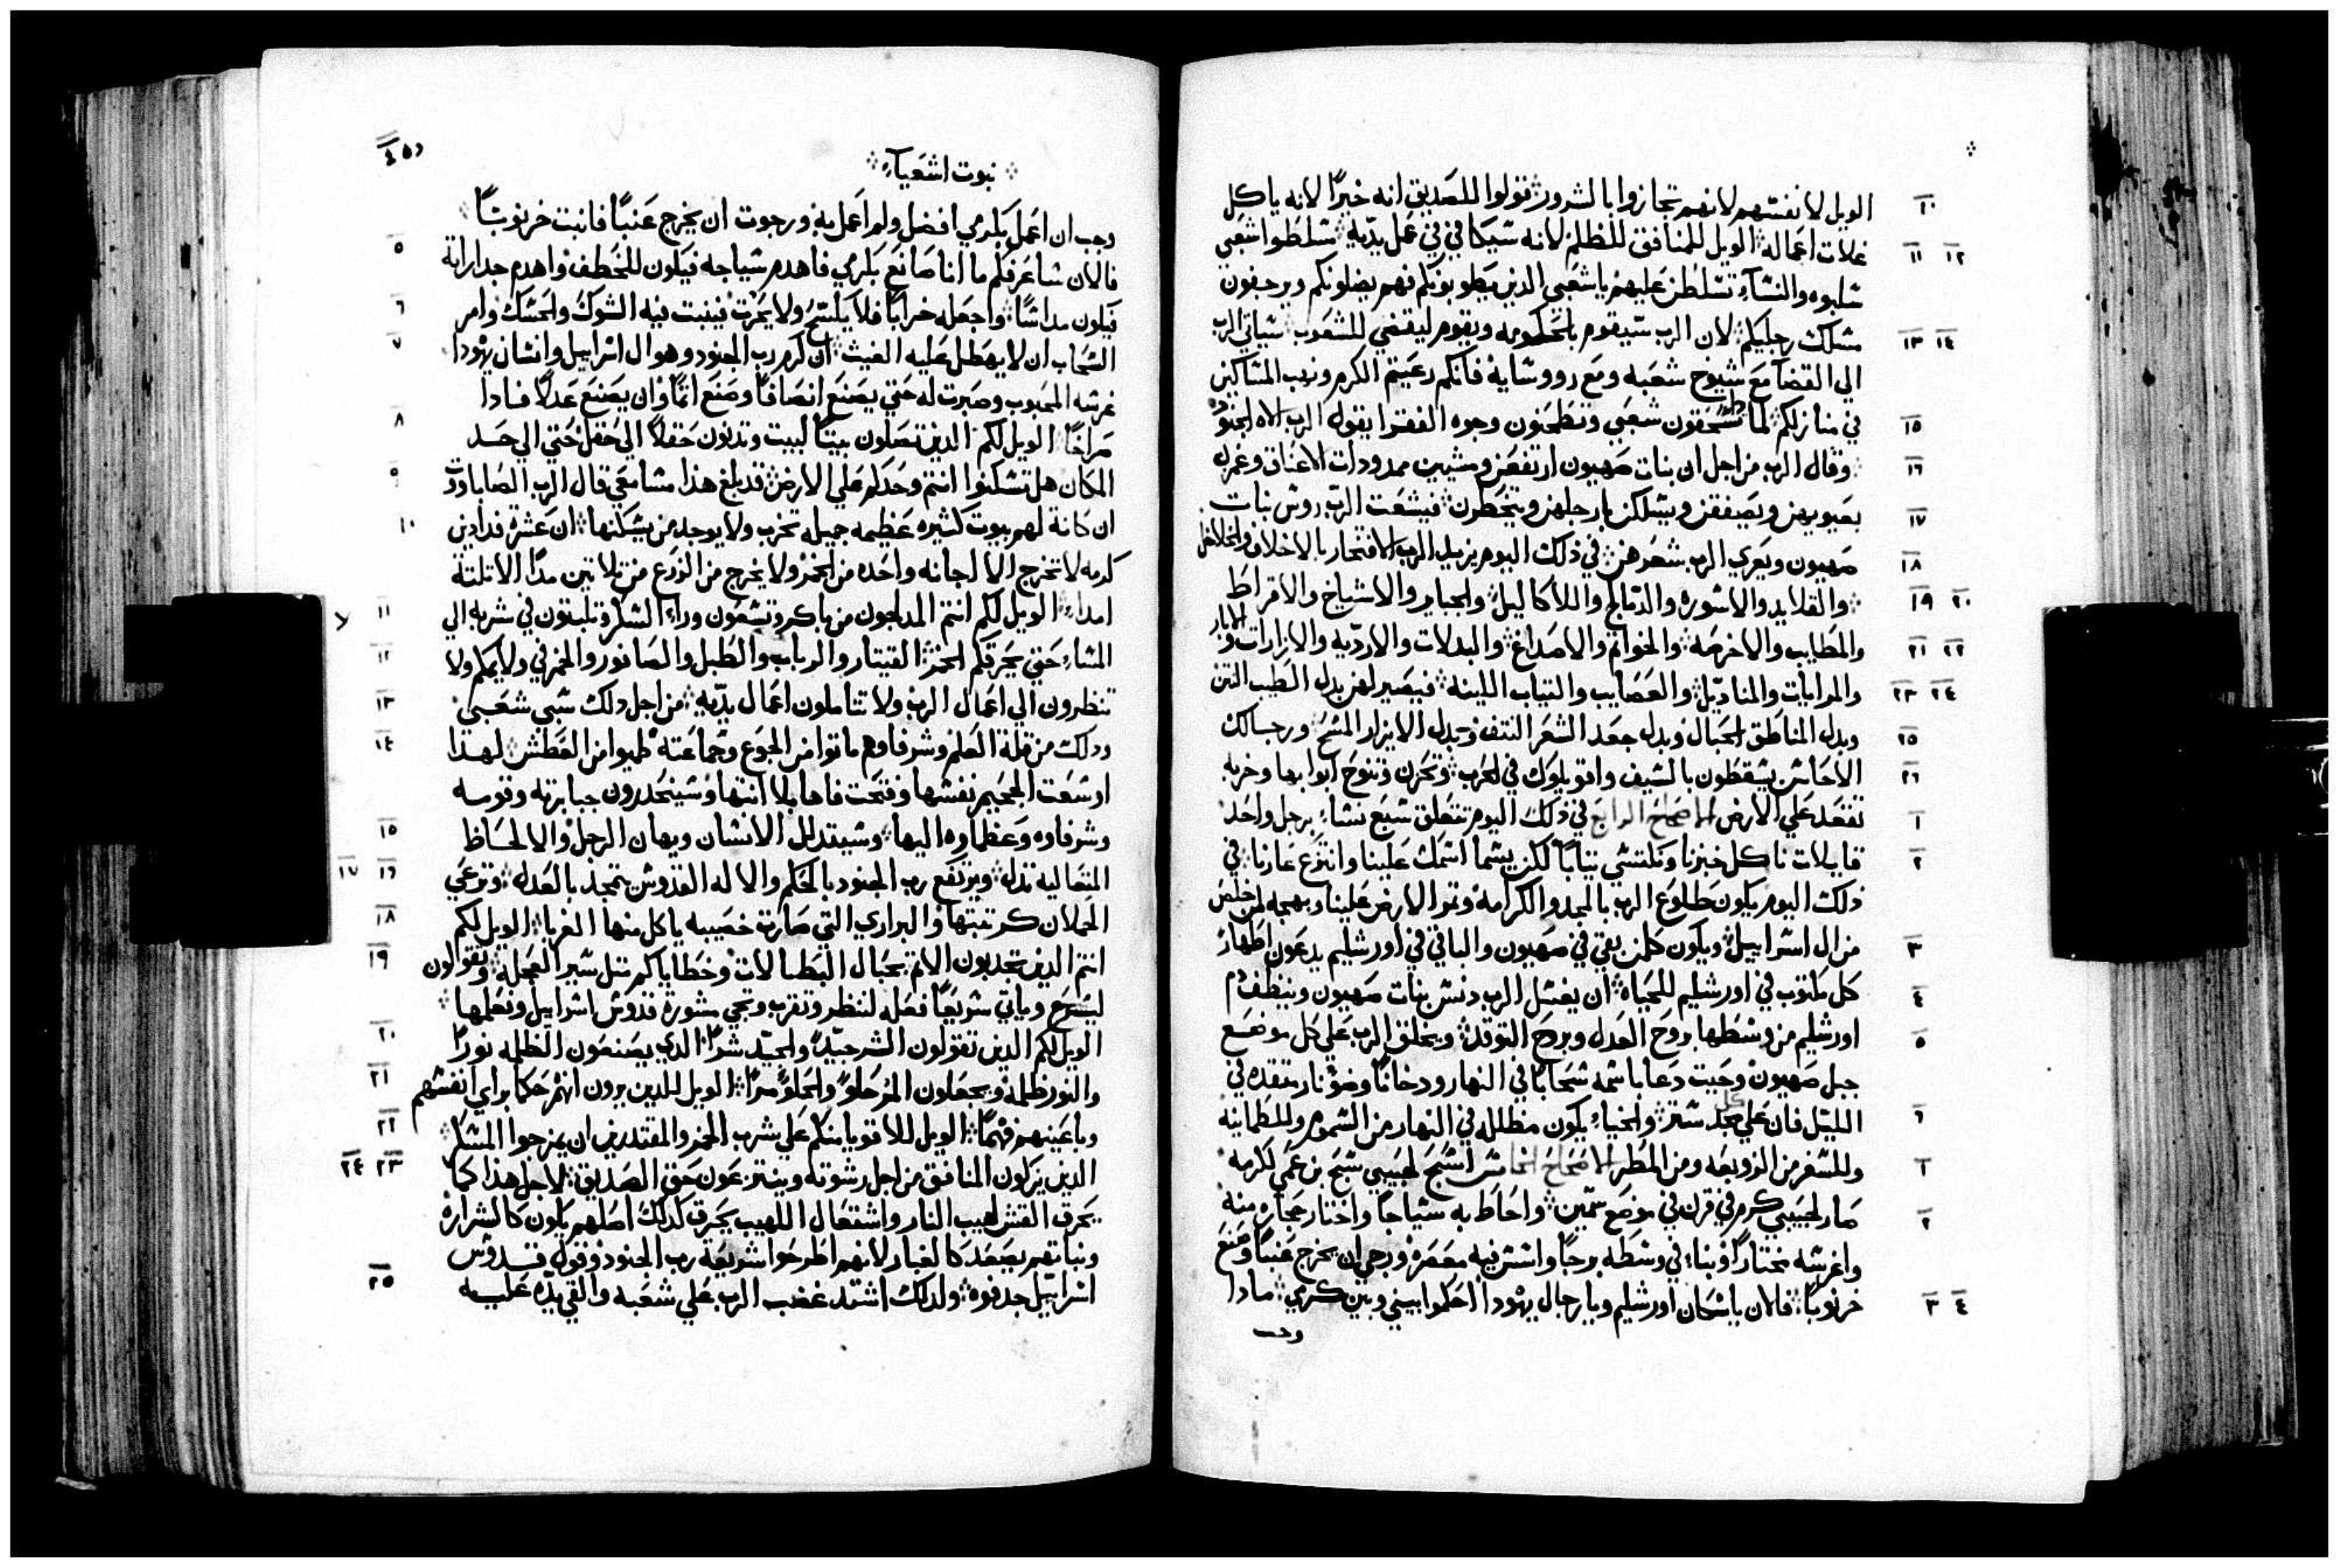 الويل لانفسهم لانهم تجازوا بالشرور قولوا للصديق انه خيرًا لانه ياكل ١٠
غلات اعماله الويل للمنافق للظلم لانه سيكافي في عمل يديه متسلطوا شعبي ١١ ١٢
سلبوه والنسآء تسلطن عليهم ياشعبي الذين يطوبونكم فهم يضلونكم ويرجفون
مسلك رجليكم لان الرب سيقوم بالحكومه ويقوم ليقضي للشعوب سياتي الرب ١٣ ١٤
الي القضآ مع شيوخ شعبه ومع رووسايه فانكم رعيتم الكرم ونهب المساكين
في منازلكم لماذا تسحقون شعبي وتطحنون وجوه الفقرا يقول الرب الاه الجنود ١٥
وقال الرب من اجل ان بنات صهيون ارتفعن ومشين ممدودات الاعناق وغمزن ١٦
بعيونهن ويصفقن ويسلكن بارجلهن ويتخطرن فيشعت الرب روس بنات ١٧
صهيون ويعري الرب شعرهن في ذلك اليوم يزيل الرب الافتخار بالاخلاف والخلاخل ١٨
والقلايد والاسوره والدمالج واللاكاليل والجبابر والاشياخ والاقراط ١٩ ٢٠
والمطايب والاخرصه والخواتم والاصداغ والبدلات والارديه والازارات والابار ٢١ ٢٢
والمرايات والمناديل والعصايب والتياب اللينه فيصير لهن بدل الطيب النتن ٢٣ ٢٤
وبدل المناطق الحبال وبدل جعد الشعر النتف وبدل الايزار المسح ورجالك ٢٥
الاحاسن يسقطون بالسيف واقويلوك في الحرب وتحزن وتنوح ابوابها وخربه ٢٦
تقعد علي الارض الاصحاح الرابع في ذلك اليوم تتعلق سبع نساء برجل واحد ١
قايلات ناكل خبزنا ونلتسي تيابنا لكن يسما اسمك علينا وانتزع عارنا في ٢
ذلك اليوم يكون طلوع الرب بالمجد والكرامه وتمرا لارض علينا وبهجه لمن خلص
من ال اسراييل ويكون كلمن بقي في صهيون والباقي في اورشليم يدعون اطهار ٣
كل مكتوب في اورشليم للحياه ان يغسل الرب دنس بنات صهيون وينظف دم ٤
اورشليم من وسطها بروح العدل وبروح التوقد ويخلق الرب علي كل موضع ٥
جبل صهيون وحيت دعا باسمه سحابًا في النهار ودخانًا وضو نار متقده في
الليل فان علي كل مجد ستر والخباء يكون مظلله في النهار من الشموم وللطمانينه ٦
وللستر من الزوبعه ومن المطر الاصحاح الخامس اسبح لحبيبي سبح بن عمي لكرمه ١
صار لحبيبي كرم في قرن في موضع سمين واحاط به سياجًا واختار حجاره منه ٢
واغرسه مختارًا وبناء في وسطه برجًا وانشي فيه معصره ورجي ان يخرج عنبًا وصنع
خرنوبًا فالان ياسكان اورشليم ويارجال يهودا احكموا بيني وبين كرمي مادا ٣ ٤
وجب
نبوت اشعيآء
وجب ان اعمل بكرمي افضل ولم اعمل به ورجوت ان يخرج عنبًا فانبت خرنوبًا
فالان ساعرفكم ما انا صانع بكرمي فاهدم سياجه فيكون للخطف واهدم جداراته ٥
فيكون مداسًا واجعله خرابًا فلا يكسح ولا يحرت فينبت فيه الشوك والحسك وامر ٦
السحاب ان لا يهطل عليه الغيث ان كرم رب الجنود وهو ال اسراييل وانسان يهودا ٧
غرسه المحبوب وصبرت له حتي يصنع انصافًا وصنع اتمًا وان يصنع عدلًا فادا
صراخًا الويل لكم الدين تصلون بيتًا لبيت وتدنون حقلًا الي حقل حتي الي حد ٨
المكان هل تسكنوا انتم وحدكم علي الارض قد بلغ هذا مسامعي قال الرب الصاباووت ٩
ان كانة لهم بيوت كتيره عظيمه جميله تخرب ولا يوجد من يسكنها ان عشره فدادين ١٠
كرمه لا تخرج الا لجانه واحده من الخمر ولا يخرج من الزرع من تلاتين مدًا الا تلتة
امداد الويل لكم انتم المدلجون من باكر وتسعون وراء السكر وتلبتون في شربه الي ١١
المساء حتي يحرقكم الخمر القيتار والرباب والطبل والصانور والخمر في ولايمكم ولا ١٢
تنظرون الي اعمال الرب ولا تتاملون اعمال يديه من اجل دلك سبي شعبي ١٣
ودلك من قلة العلم وشرفاوهم ماتوا من الجوع وجماعته ظميوا من العطش لهدا ١٤
اوسعت الجحيم نفسها وفتحت فاها بلا انتها وسينحدرون جبابرته وقومه
وشرفاوه وعظماوه اليها وسيتدلل الانسان ويهان الرجل والالحاظ ١٥
المتعاليه تدل ويرتفع رب الجنود بالحكم والاله القدوس يتمجد بالعدل وترعي ١٦ ١٧
الحملان كرتبتها والبراري التي صارة خصيبه ياكل منها الغربا الويل لكم ١٨
انتم الذين تجدبون الاتم بحبال البطالات وخطاياكم متل سير العجله وتقولون ١٩
ليسرع وياتي سريعًا فعله لننظر وتقرب وتجي مشورة قدوس اسراييل ونعلمها
الويل لكم الدين تقولون الشر جيدًا والجيد شرًا الدي يصنعون الظلمه نورًا ٢٠
والنور ظلمه ويجعلون المر حلوًا والحلو مرًا الويل للدين يرون انهم حكما براي انفسهم ٢١
وباعينهم فهمًا الويل للاقويا منكم علي شرب الخمر والمقتدرين ان يمزجوا المسكر ٢٢
الدين يزكون المنافق من اجل رشوته وينتزعون حق الصديق لاجل هذا كما ٢٣ ٢٤
يحرق القش لهيب النار واشتعال اللهيب يحرق كدلك اصلهم يكون كالشراره
ونباتهم يصعد كالغبار لانهم اطرحوا شريعة رب الجنود وقول قدوس
اسراييل جدفوه ولدلك اشتد غضب الرب علي شعبه والقي يده عليه ٢٥